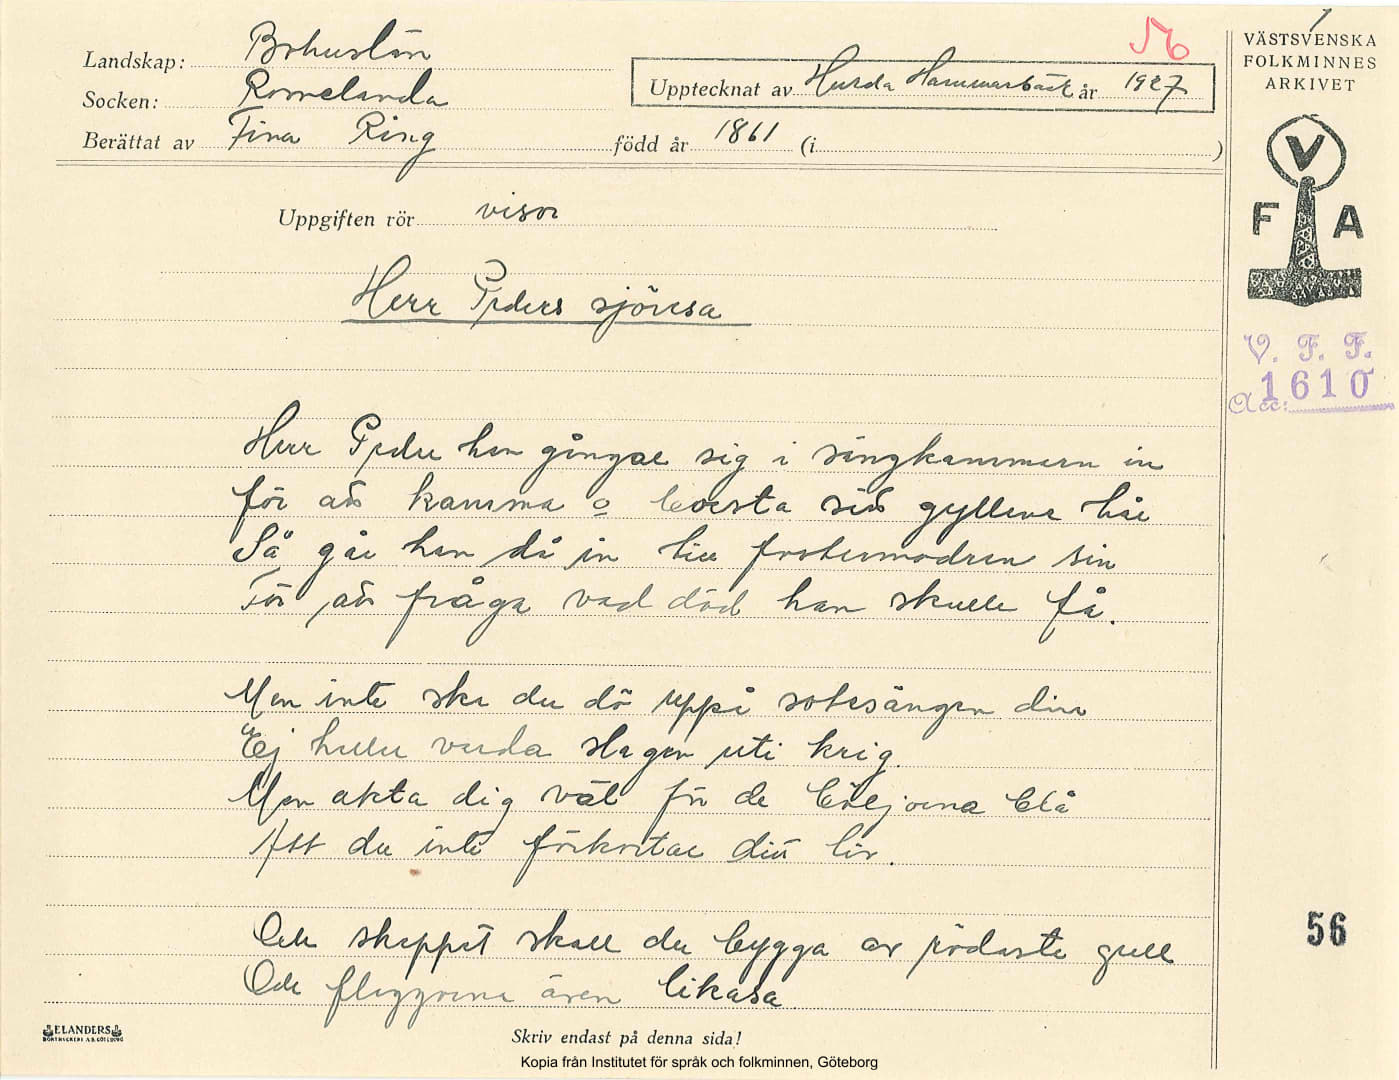 Landskap: Bohuslän
Socken: Romelanda
Berättat av Fina Ring född år 1861 (i )
Upptecknat av Hulda Hammarbäck år 1927
VÄSTSVENSKA
FOLKMINNES
ARKIVET
V
F A
Uppgiften rör visor
Herr Peders sjöresa
V. F. F.
Acc: 1610
Herr Peder han gångar sig i sängkammaren in
för att kamma o borsta sitt gyllene hår
Så går han då in till fostermodren sin
För att fråga vad död han skulle få.
Men inte ska du dö uppå sotesängen din
Ej heller varda slagen uti krig.
Men akta dig väl för de böljorna blå
Att du inte förkortar ditt liv.
Och skeppet skall du bygga av rödaste gull
Och flaggorna även likasa
56
ELANDERS
BOKTRYCKERI A.B. GÖTEBORG
Skriv endast på denna sida!
Kopia från Institutet för språk och folkminnen, Göteborg